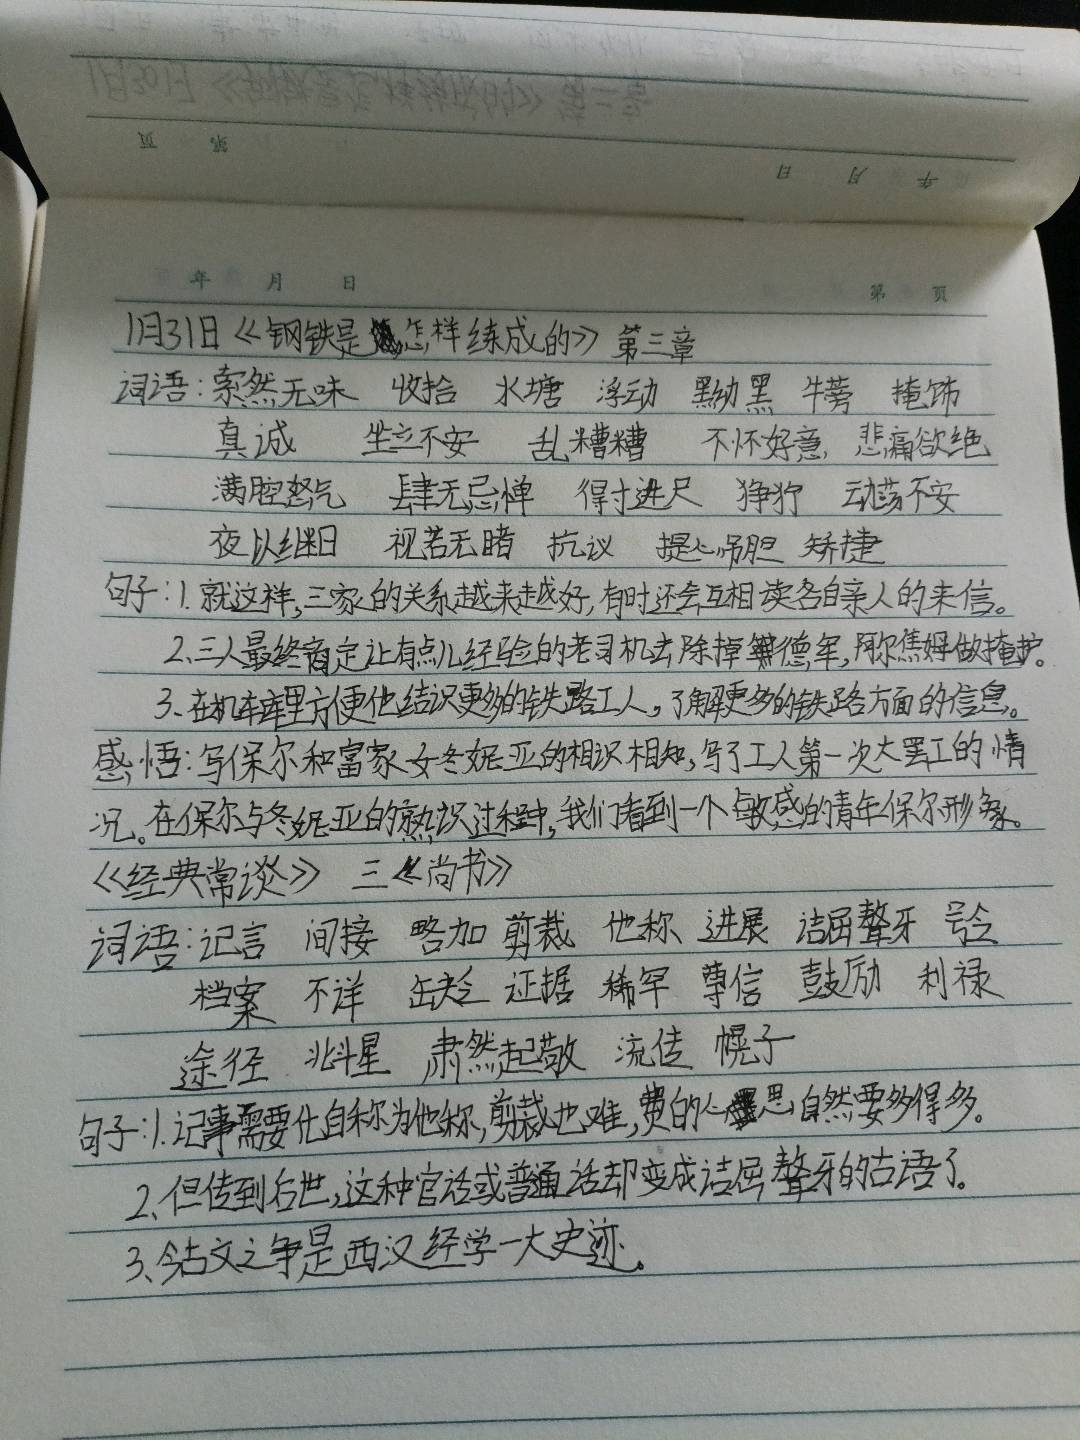 年 月 日 第 页
1月31日《钢铁是怎样练成的》第三章
词语:索然无味 收拾 水塘 浮动 黝黑 牛蒡 掩饰
真诚 坐立不安 乱糟糟 不怀好意 悲痛欲绝
满腔怒气 肆无忌惮 得寸进尺 狰狞 动荡不安
夜以继日 视若无睹 抗议 提心吊胆 矫捷
句子:1.就这样,三家的关系越来越好,有时还会互相读各自亲人的来信。
2、三人最终商定让有点儿经验的老司机去除掉德军,阿尔焦姆做掩护。
3、在机车库里方便他结识更多的铁路工人,了解更多的铁路方面的信息。
感悟:写保尔和富家女冬妮亚的相识相知,写了工人第一次大罢工的情
况。在保尔与冬妮亚的熟识过程中,我们看到一个敏感的青年保尔形象。
《经典常谈》 三《尚书》
词语:记言 间接 略加 剪裁 他称 进展 诘屈聱牙 号令
档案 不详 缺 证据 稀罕 尊信 鼓励 利禄
途径 北斗星 肃然起敬 流传 幌子
句子:1.记事需要化自称为他称,剪裁也难,费的心思自然要多得多。
2、但传到后世,这种官话或普通话却变成诘屈聱牙的古语了。
3、今古文之争是西汉经学一大史迹。